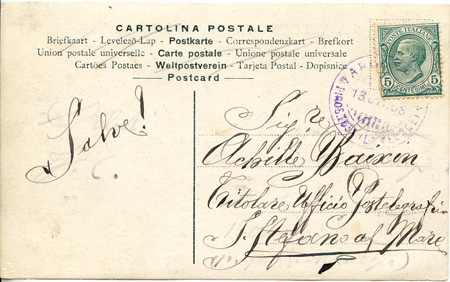 CARTOLINA POSTALE
Briefkaart - Levelező-Lap - Postkarte - Correspondenzkart - Brefkort
Union postale universelle - Carte postale - Unione postale universale
Cartões Postaes - Weltpostverein - Tarjeta Postal - Dopisnice
Postcard
POSTE ITALIANE
5 CENTESIMI 5
Salve!
Sig.re
Achille
Titolare Ufficio Postelegrafico
S. Stefano al Mare